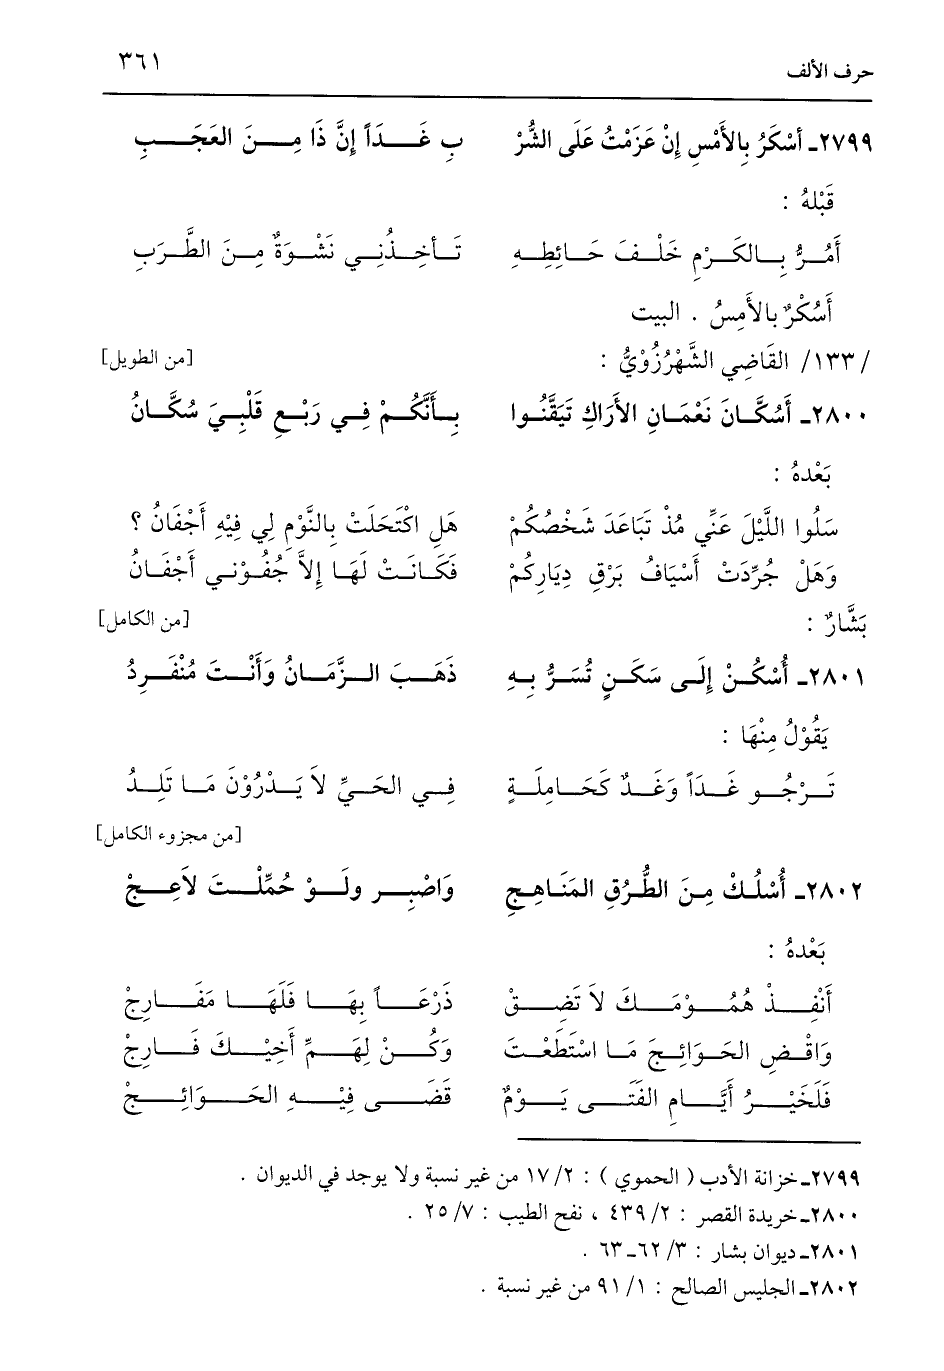 حرف الألف ٣٦١
٢٧٩٩ـ أَسْكَرُ بِالأَمْسِ إِنْ عَزَمْتُ عَلَى الشُّرْ بِ غَــداً إِنَّ ذَا مِــنَ العَجَــبِ
قَبْلهُ :
أَمُــرُّ بِــالكَــرْمِ خَلْــفَ حَــائِطِــهِ تَــأخِــذُنِــي نَشْــوَةٌ مِــنَ الطَّــرَبِ
أَسُكْرٌ بالأَمِسُ . البيت
/ ١٣٣/ القَاضِي الشَّهْرُزُوْيُّ : [من الطويل]
٢٨٠٠ـ أَسُكَّــانَ نَعْمَــانِ الأرَاكِ تَيَقَّنُــوا بِــأَنَّكُــمْ فِــي رَبْــعِ قَلْبِــيَ سُكَّــانُ
بَعْدهُ :
سَلُوا اللَّيْلَ عَنِّي مُذْ تَبَاعَدَ شَخْصُكُمْ هَلِ اكْتَحَلَتْ بِالنَّوْمِ لِي فِيْهِ أَجْفَانُ ؟
وَهَلْ جُرِّدَتْ أَسْيَافُ بَرْقِ دِيَارِكُمْ فَكَــانَــتْ لَهَــا إِلاَّ جُفُــوْنــي أَجْفَــانُ
بَشَّارٌ : [من الكامل]
٢٨٠١ـ أُسْكُــنْ إِلَــى سَكَــنٍ تُسَــرُّ بِــهِ ذَهَــبَ الــزَّمَــانُ وَأَنْــتَ مُنْفَــرِدُ
يَقُوْلُ مِنْهَا :
تَــرْجُــو غَــدَاً وَغَــدٌ كَحَــامِلَــةٍ فِــي الحَــيِّ لاَ يَــدْرُوْنَ مَــا تَلِــدُ
[من مجزوء الكامل]
٢٨٠٢ـ أُسْلُــكْ مِــنَ الطُّــرُقِ المَنَــاهِــجِ وَاصْبِــر ولَــوْ حُمِّلْــتَ لاَعِــجْ
بَعْدهُ :
أَنْفِــذْ هُمُــوْمَــكَ لاَ تَضِــقْ ذَرْعَــاً بِهَــا فَلَهَــا مَفَــارِجْ
وَاقْــضِ الحَــوَائِــجَ مَــا اسْتَطَعْــتَ وَكُــنْ لِهَــمِّ أَخِيْــكَ فَــارِجْ
فَلَخَيْــرُ أَيَّــامِ الفَتَــى يَــوْمٌ قَضَــى فِيْــهِ الحَــوَائِــجْ
٢٧٩٩ـ خزانة الأدب ( الحموي ) : ٢/ ١٧ من غير نسبة ولا يوجد في الديوان .
٢٨٠٠ـ خريدة القصر : ٢/ ٤٣٩ ، نفح الطيب : ٧/ ٢٥ .
٢٨٠١ـ ديوان بشار : ٣/ ٦٢ـ ٦٣ .
٢٨٠٢ـ الجليس الصالح : ١/ ٩١ من غير نسبة .